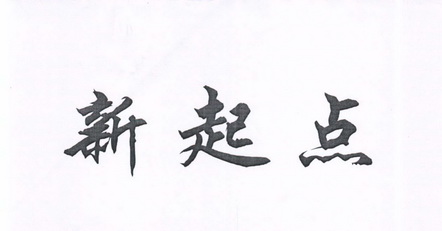 新起点